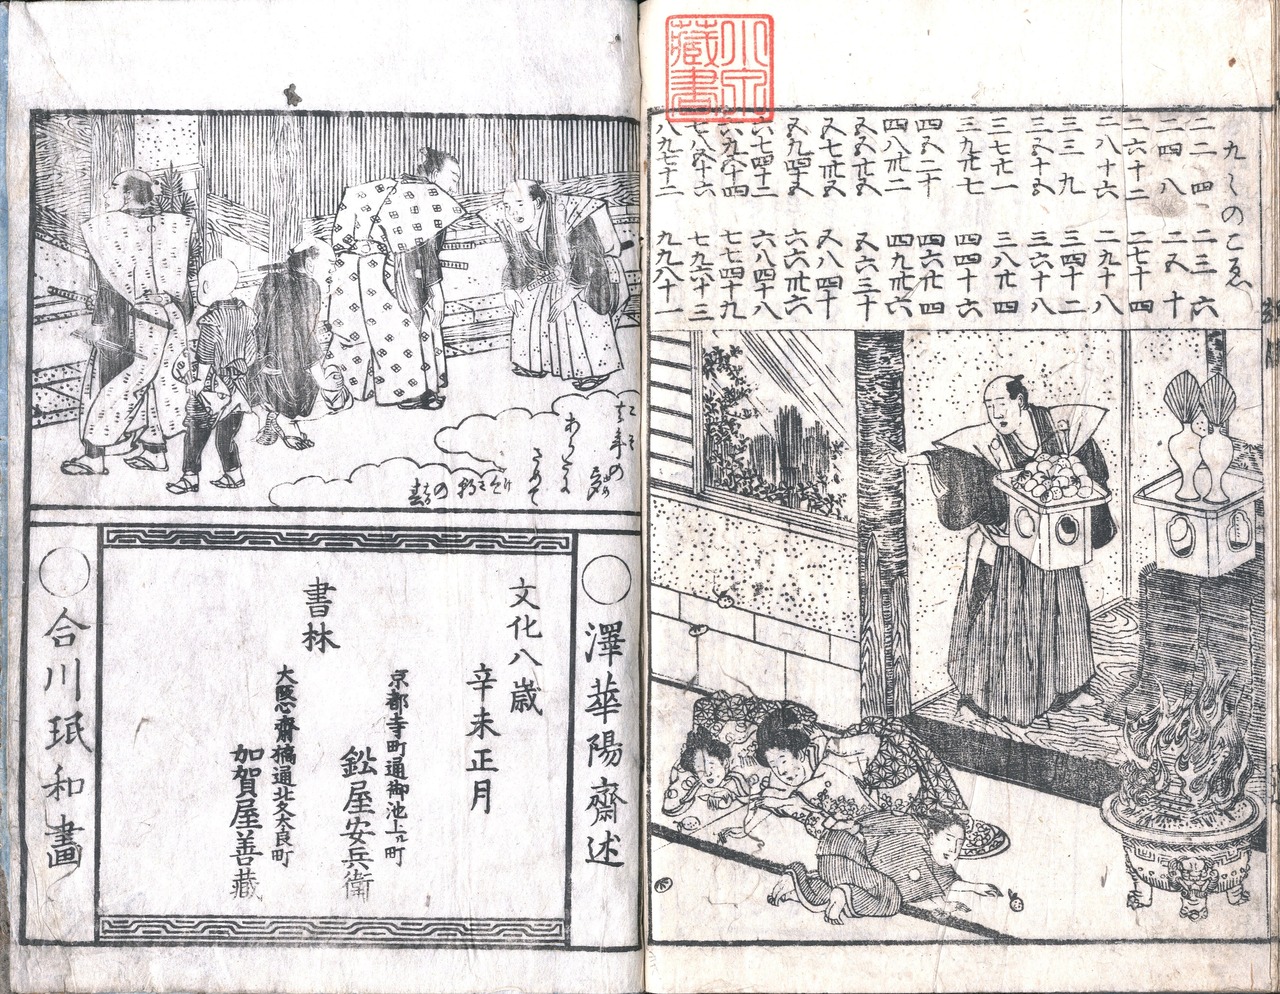 藏書
九〱のこゑ
二二 四 二三 六
二四 八 二五 十
二六十二 二七十四
二八十六 二九十八
三三九 三四十二
三五十五 三六十八
三七廿一 三八廿四
三九廿七 四四十六
四五二十 四六廿四
四八卅二 四九卅六
五五廿五 五六三十
五七卅五 五八四十
五九四十五 六六卅六
六七四十二 六八四十八
六九五十四 七七四十九
七八五十六 七九六十三
八九七十二 九九八十一
あらたに
さめて
澤華陽齋述
文化八歳
辛未正月
京都寺町通御池上ル町
鉛屋安兵衛
書林
大坂心齋橋通北久太良町
加賀屋善藏
合川珉和畫